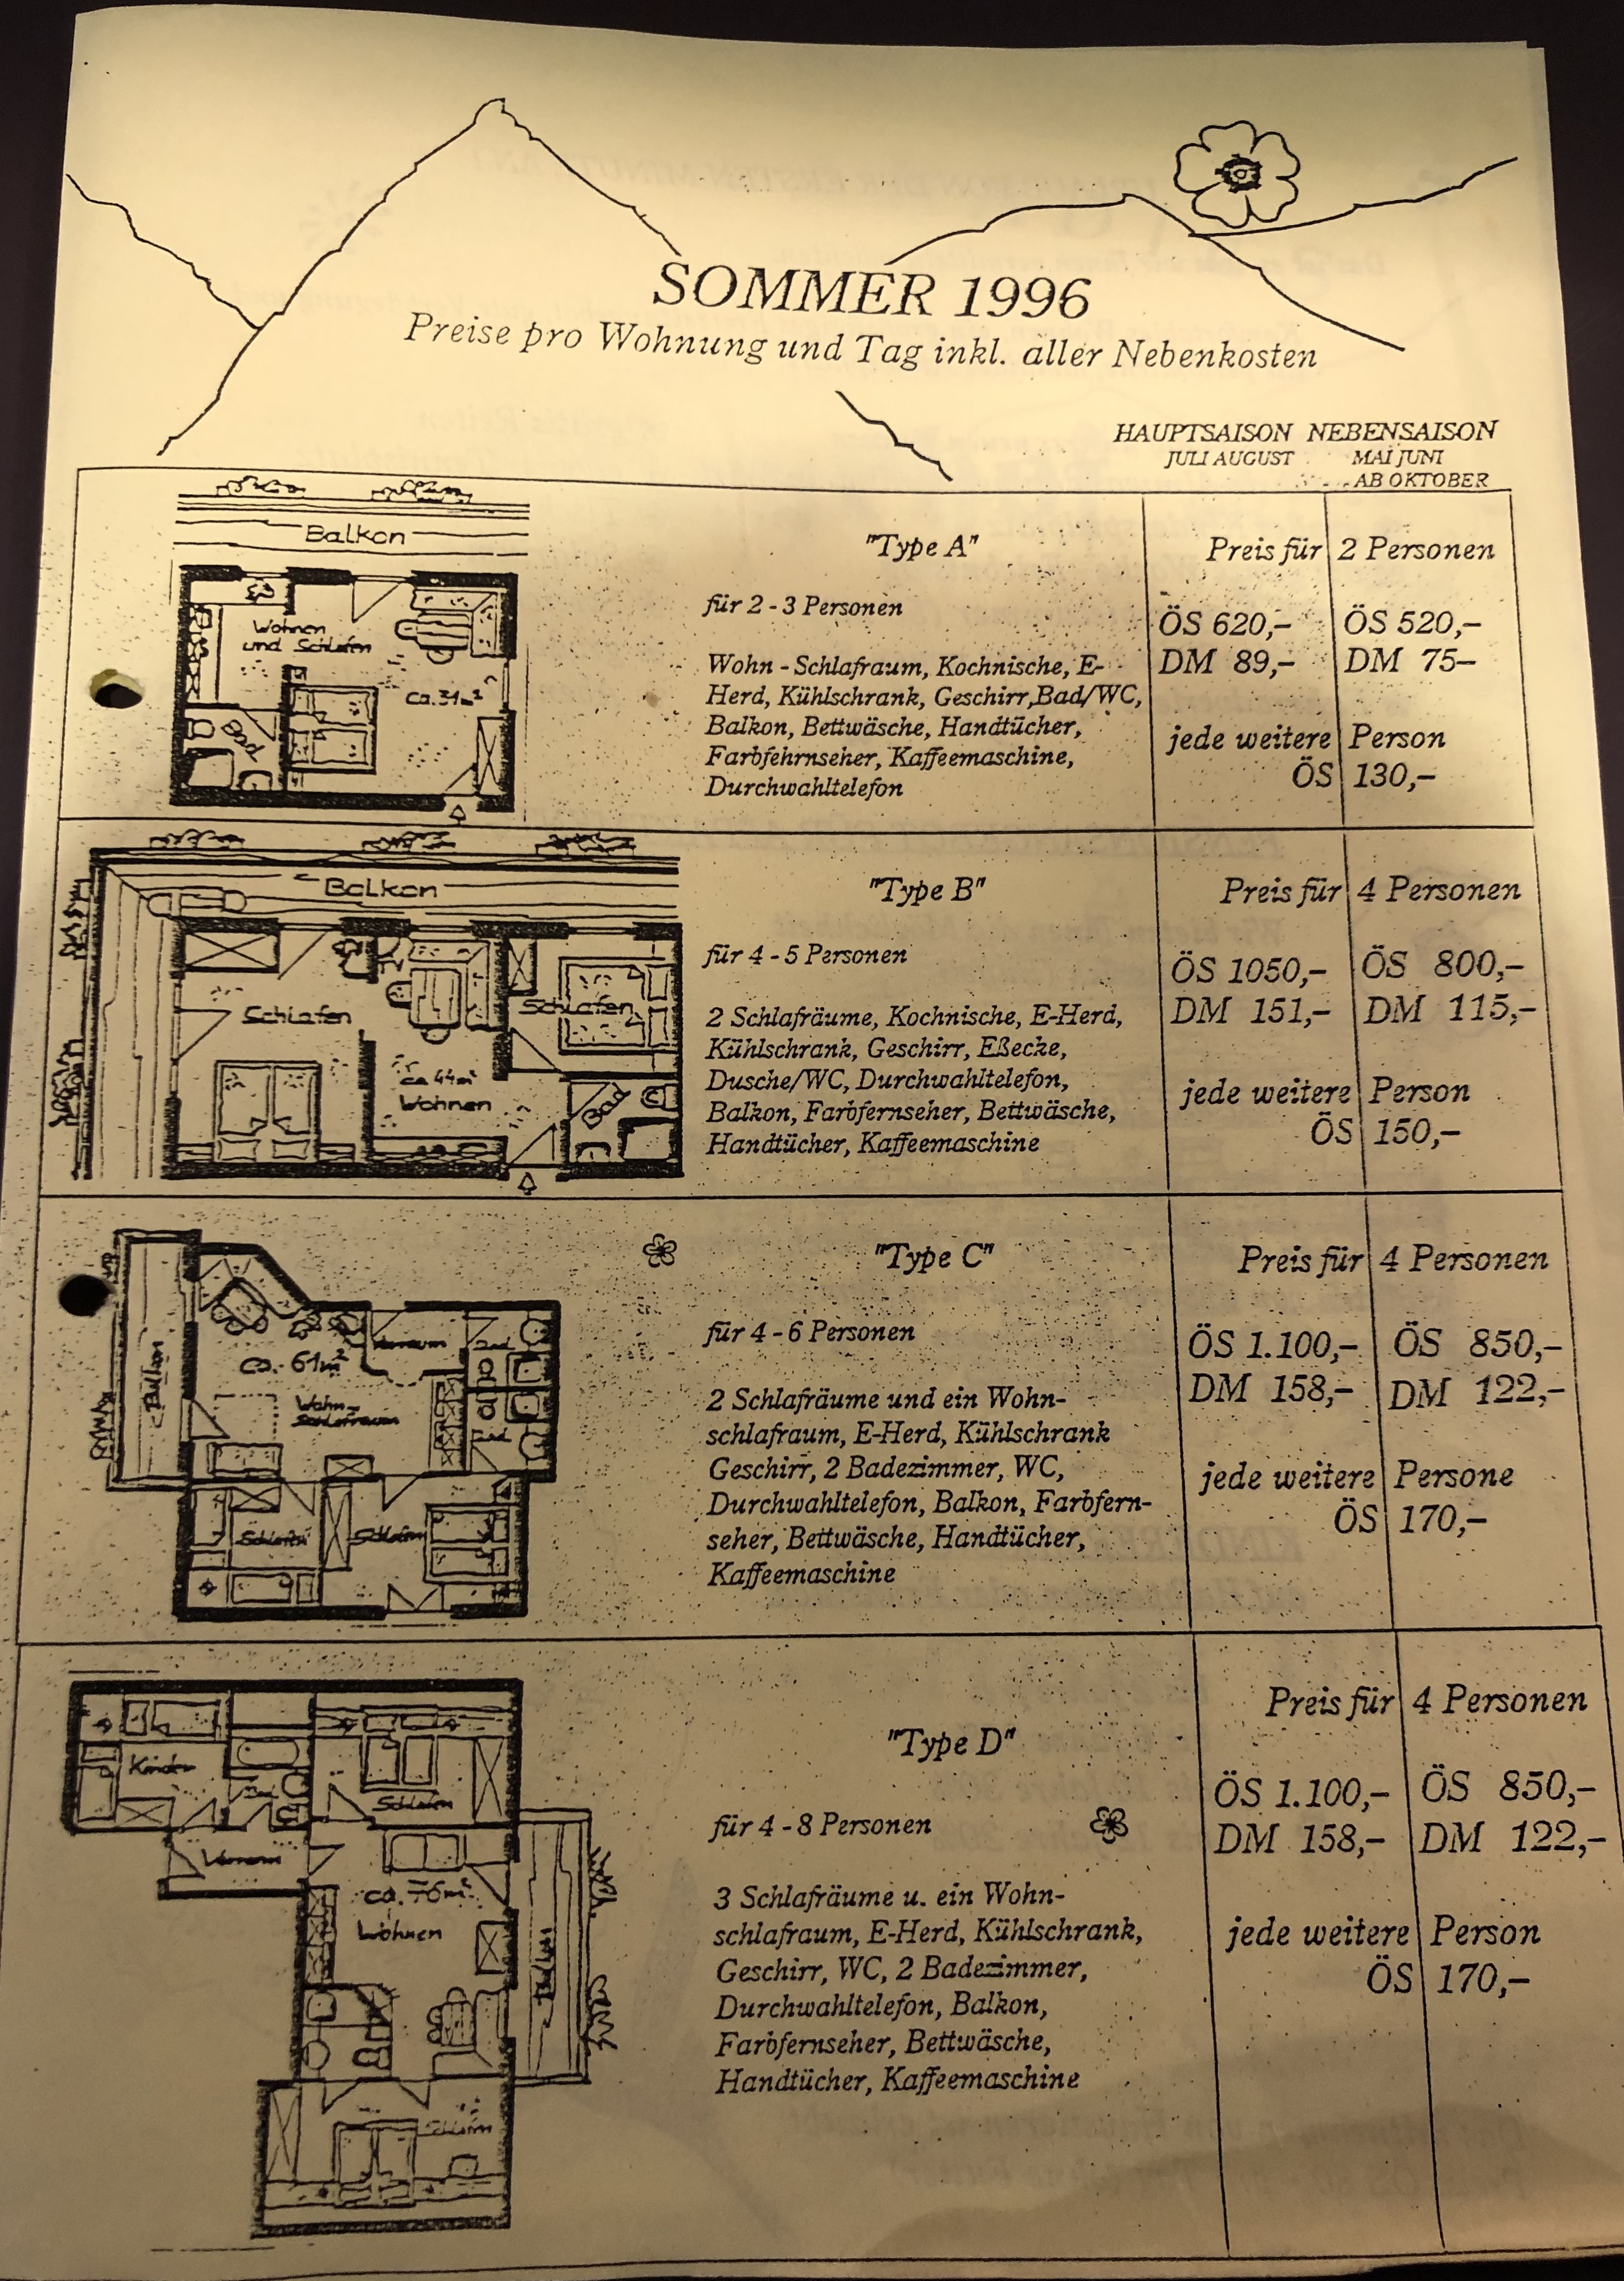 SOMMER 1996
Preise pro Wohnung und Tag inkl. aller Nebenkosten
HAUPTSAISON NEBENSAISON
JULI AUGUST MAI JUNI
AB OKTOBER
Balkon
Wohnen
und Schlafen
ca. 31m²
Bad
"Type A"
für 2 - 3 Personen
Wohn - Schlafraum, Kochnische, E-
Herd, Kühlschrank, Geschirr,Bad/WC,
Balkon, Bettwäsche, Handtücher,
Farbfehrnseher, Kaffeemaschine,
Durchwahltelefon
Preis für 2 Personen
ÖS 620,- ÖS 520,-
DM 89,- DM 75-
jede weitere Person
ÖS 130,-
Balkon
Schlafen
Schlafen
ca 44m²
Wohnen
Bad
"Type B"
für 4 - 5 Personen
2 Schlafräume, Kochnische, E-Herd,
Kühlschrank, Geschirr, Eßecke,
Dusche/WC, Durchwahltelefon,
Balkon, Farbfernseher, Bettwäsche,
Handtücher, Kaffeemaschine
Preis für 4 Personen
ÖS 1050,- ÖS 800,-
DM 151,- DM 115,-
jede weitere Person
ÖS 150,-
Balkon
ca. 61m²
Vorraum
Bad
Wohn-
Schlafraum
Bad
Schlafen
Schlafen
"Type C"
für 4 - 6 Personen
2 Schlafräume und ein Wohn-
schlafraum, E-Herd, Kühlschrank
Geschirr, 2 Badezimmer, WC,
Durchwahltelefon, Balkon, Farbfern-
seher, Bettwäsche, Handtücher,
Kaffeemaschine
Preis für 4 Personen
ÖS 1.100,- ÖS 850,-
DM 158,- DM 122,-
jede weitere Persone
ÖS 170,-
Kinder
Bad
Schlafen
Vorraum
ca. 76m²
Wohnen
Balkon
Schlafen
"Type D"
für 4 - 8 Personen
3 Schlafräume u. ein Wohn-
schlafraum, E-Herd, Kühlschrank,
Geschirr, WC, 2 Badezimmer,
Durchwahltelefon, Balkon,
Farbfernseher, Bettwäsche,
Handtücher, Kaffeemaschine
Preis für 4 Personen
ÖS 1.100,- ÖS 850,-
DM 158,- DM 122,-
jede weitere Person
ÖS 170,-